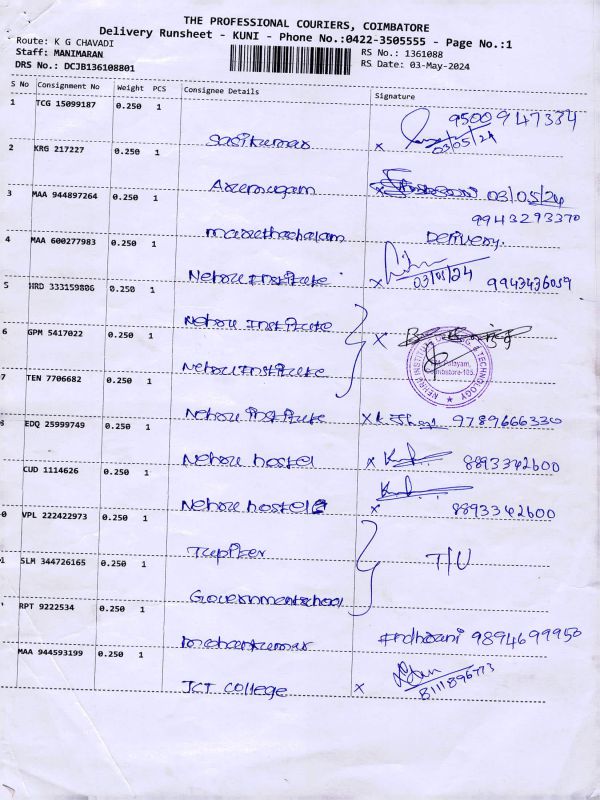 THE PROFESSIONAL COURIERS, COIMBATORE
Delivery Runsheet - KUNI - Phone No.:0422-3505555 - Page No.:1
Route: K G CHAVADI
Staff: MANIMARAN
DRS No.: DCJB136108801
RS No.: 1361088
RS Date: 03-May-2024
S No Consignment No Weight PCS Consignee Details Signature
1 TCG 15099187 0.250 1 Sasikumar 9500947334
x 03/05/24
2 KRG 217227 0.250 1 Arumugam x 03/05/24
9943293370
3 MAA 944897264 0.250 1 Maruthachalam Delivery.
4 MAA 600277983 0.250 1 Nehru Institute x 03/05/24 9943436059
5 HRD 333159806 0.250 1 Nehru Institute x
6 GPM 5417022 0.250 1 Nehru Institute
7 TEN 7706682 0.250 1 Nehru Institute x 9789666330
8 EDQ 25999749 0.250 1 Nehru hostel x 8893342600
CUD 1114626 0.250 1 Nehru hostel x 8893342600
0 VPL 222422973 0.250 1 Jupiter T/U
1 SLM 344726165 0.250 1 Government school
RPT 9222534 0.250 1 Mohankumar Indhrani 9894699950
MAA 944593199 0.250 1 JCT College x 8111896773